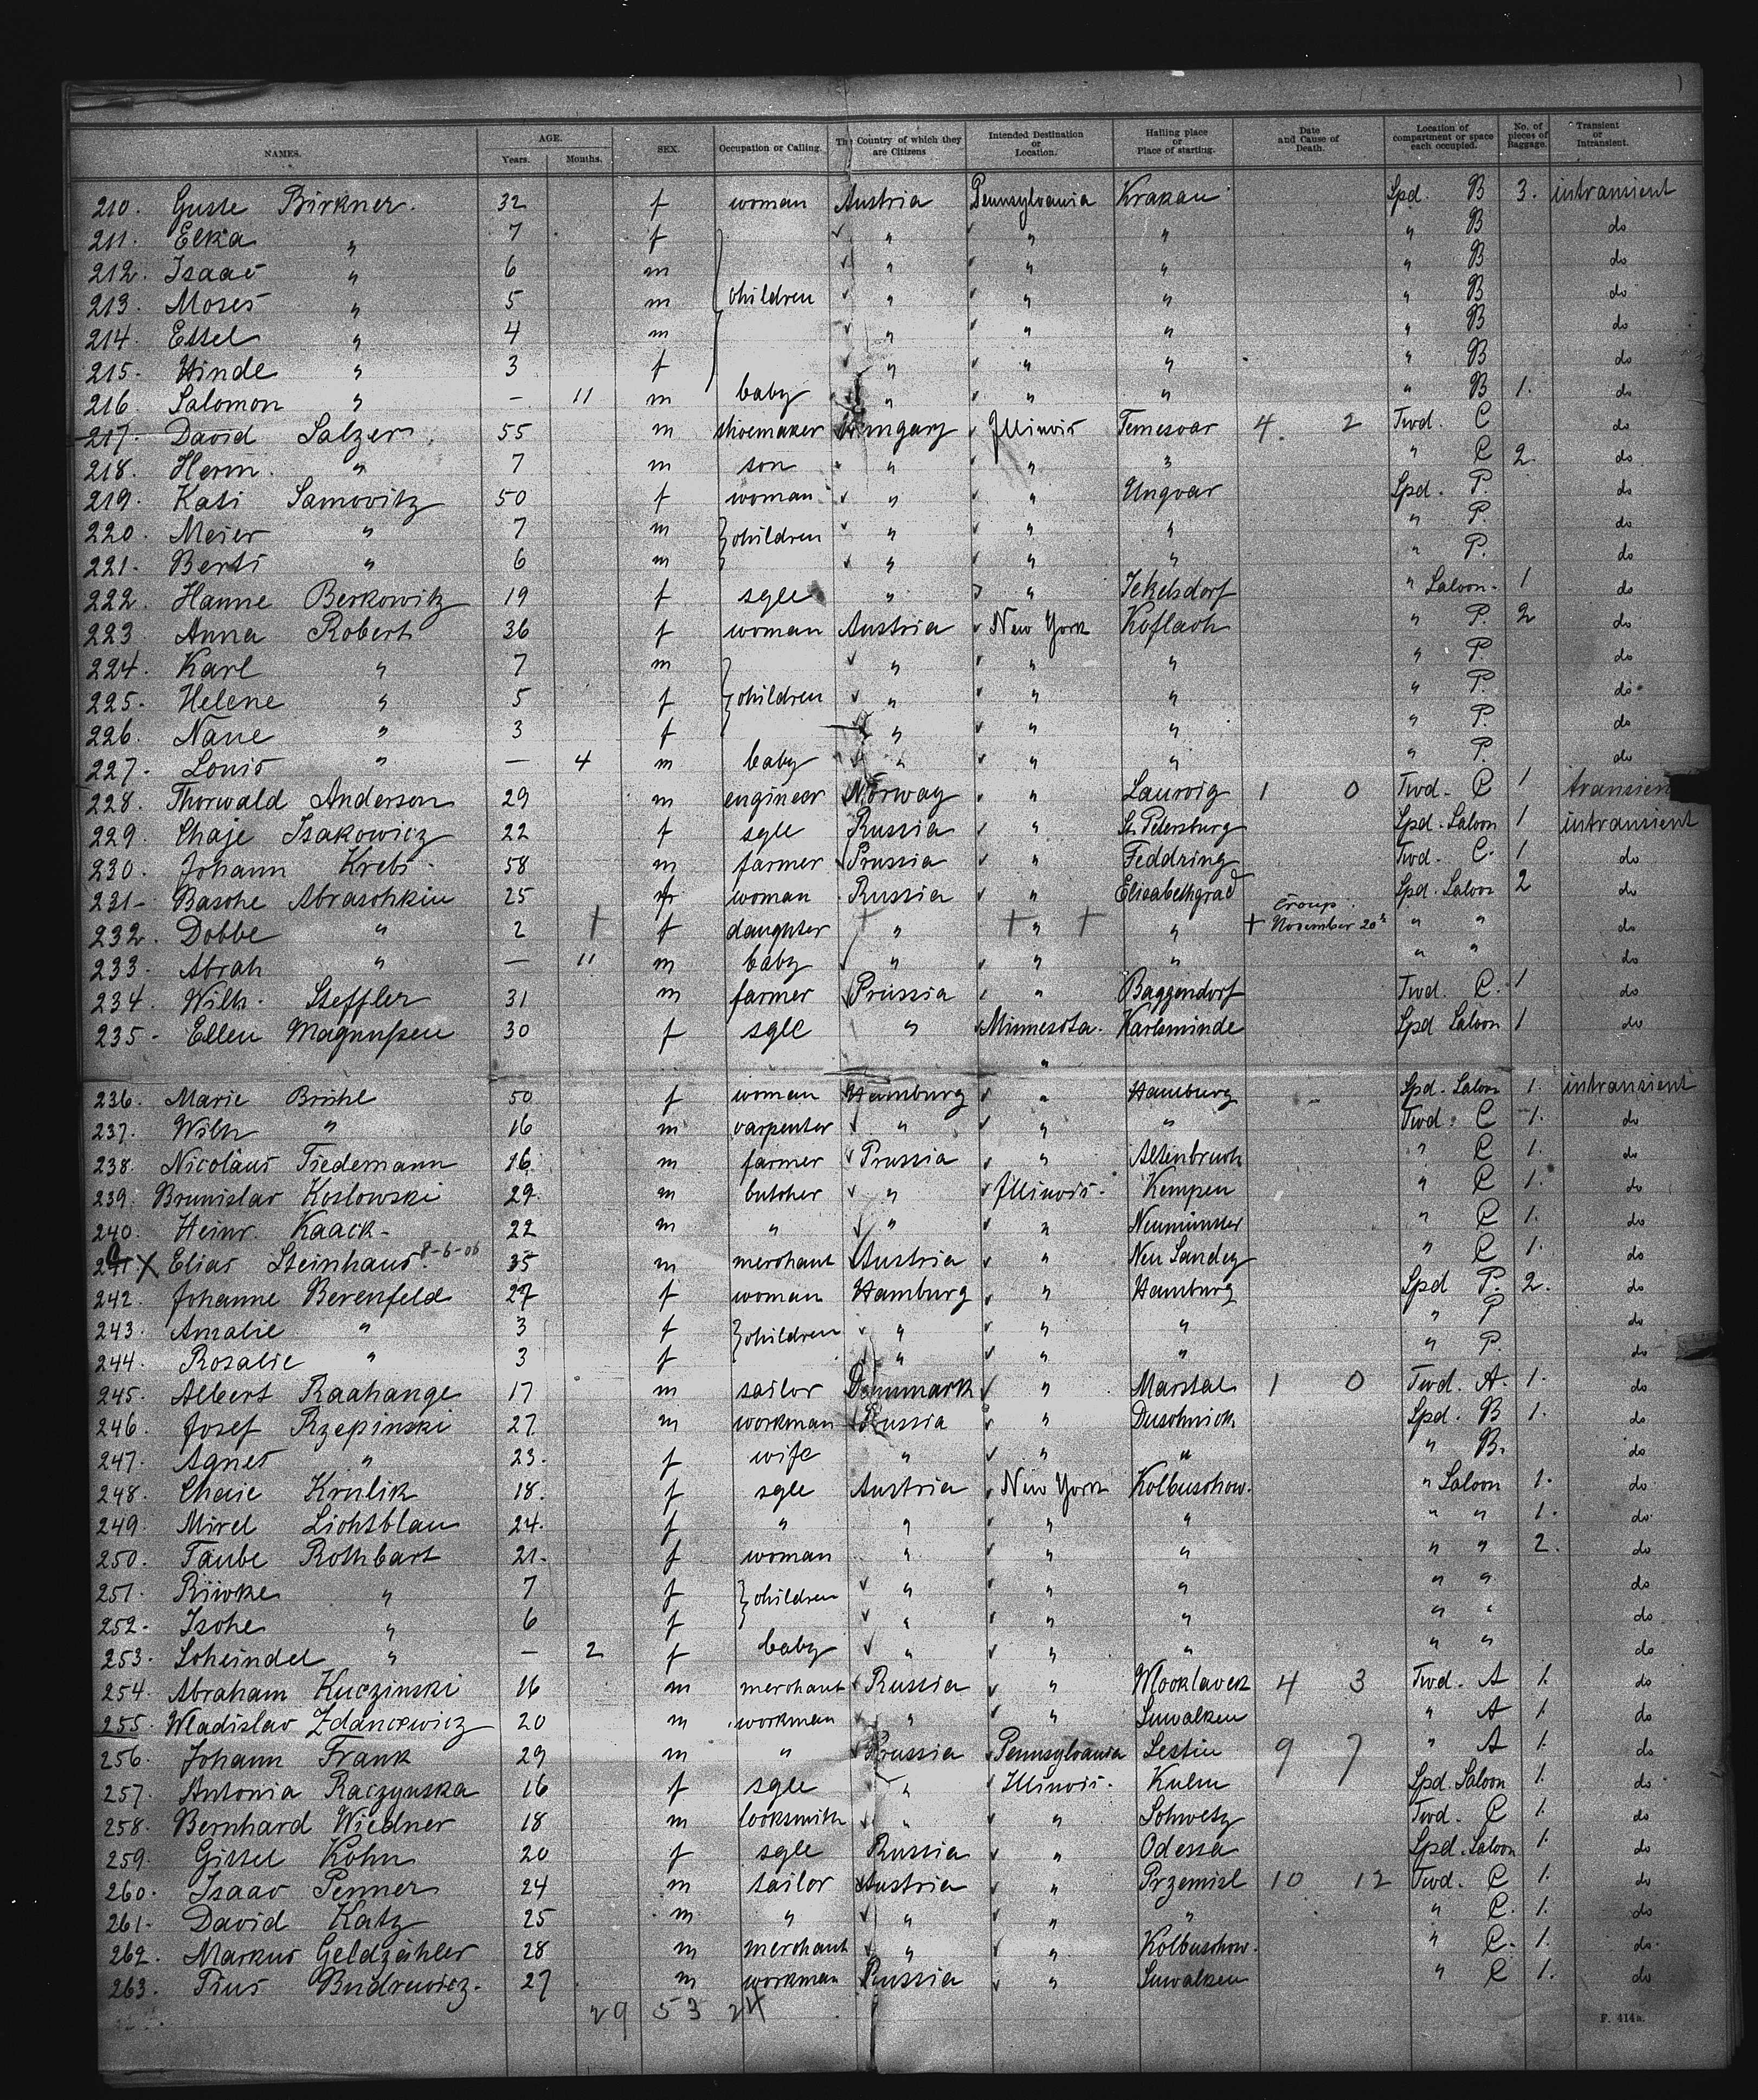 NAMES. AGE. Years. Months. SEX. Occupation or Calling. The Country of which they are Citizens Intended Destination or Location. Hailing place or Place of starting. Date and Cause of Death. Location of compartment or space each occupied. No. of pieces of Baggage. Transient or Intransient.
210. Guste Birkner. 32 f woman Austria Pennsylvania Krakau Spd. B 3. intransient
211. Elka " 7 f " " " " B do
212. Isaac " 6 m " " " " B do
213. Moses " 5 m children " " " " B do
214. Ettel " 4 m " " " " B do
215. Hinde " 3 f " " " " B do
216. Salomon " – 11 m baby " " " " B 1. do
217. David Salzer. 55 m shoemaker Hungary Illinois Temesvar 4. 2 Twd. C do
218. Herm. " 7 m son " " " " C 2. do
219. Kati Samovitz 50 f woman " " Ungvar Spd. P. do
220. Meier " 7 m children " " " " P. do
221. Berti " 6 m " " " " P. do
222. Hanne Berkowitz 19 f sgle " " Jekelsdorf " Saloon 1 do
223. Anna Robert 36 f woman Austria New York Koflach " P. 2 do
224. Karl " 7 m " " " " P. do
225. Helene " 5 f children " " " " P. do
226. Nane " 3 f " " " " P. do
227. Louis " – 4 m baby " " " " P. do
228. Thorwald Anderson 29 m engineer Norway " Laurvig 1 0 Twd. C 1 transien
229. Chaje Isakowicz 22 f sgle Russia " St. Petersburg Spd. Saloon 1 intransient
230. Johann Krebs 58 m farmer Prussia " Feddring Twd. C. 1 do
231. Basche Abraschkin 25 f woman Russia " Elisabethgrad Spd. Saloon 2 do
232. Dobbe " 2 † f daughter † " † " † " Croup. † November 20th " " do
233. Abrah " – 11 m baby " " " " " do
234. Wilh. Steffler 31 m farmer Prussia " Baggendorf Twd. C. 1 do
235. Ellen Magnußen 30 f sgle " Minnesota. Karlsminde Spd Saloon 1 do
"
236. Marie Brühl 50 f woman Hamburg " Hamburg Spd. Saloon 1. intransient
237. Wilh " 16 m carpenter " " " Twd. C 1. do
238. Nicolaus Tiedemann 16 m farmer Prussia " Altenbruch " C 1. do
239. Brunislav Koslowski 29. m butcher " Illinois. Kempen " C 1. do
240. Heinr. Kaack 22 m " " " Neumünster " C 1. do
241. X Elias Steinhaus. 8-6-06 35 m merchant Austria " Neu Sandez " C 1. do
242. Johanne Berenfeld 27 f woman Hamburg " Hamburg Spd P. 2. do
243. Amalie " 3 f children " " " " P do
244. Rosalie " 3 f " " " " P. do
245. Albert Raahange 17 m sailor Denmark " Marstal 1 0 Twd. A. 1. do
246. Josef Rzepinski 27 m workman Russia " Duschnick Spd. B 1. do
247. Agnes " 23. f wife " " " " B. do
248. Chaie Krulik 18. f sgle Austria New York Kolbuschow. " Saloon 1. do
249. Mirel Lichtblau 24. f " " " " " " 1. do
250. Taube Rothbart 21. f woman " " " " " 2. do
251. Riwke " 7 f children " " " " " do
252. Ische " 6 f " " " " " do
253. Scheindel " – 2 f baby " " " " " do
254. Abraham Kuczinski 16 m merchant Russia " Wloclaveck 4 3 Twd. A 1. do
255. Wladislav Zdancewicz 20 m workman " " Suwalken " A 1. do
256. Johann Frank 29 m " Prussia Pennsylvania Lestin 9 7 " A 1. do
257. Antonia Raczynska 16 f sgle " Illinois. Kulm Spd. Saloon 1. do
258. Bernhard Wiedner 18 m locksmith " " Schwetz Twd. C 1. do
259. Gittel Kohn 20 f sgle Russia " Odessa Spd. Saloon 1. do
260. Isaac Penner 24 m tailor Austria " Przemisl 10 12 Twd. C 1. do
261. David Katz 25 m " " " " " C. 1. do
262. Markus Geldzähler 28 m merchant " " Kolbuschow. " C. 1. do
263. Pius Budrewicz. 27 m workman Russia " Suwalken " C 1. do
29 53 24
F. 414a.